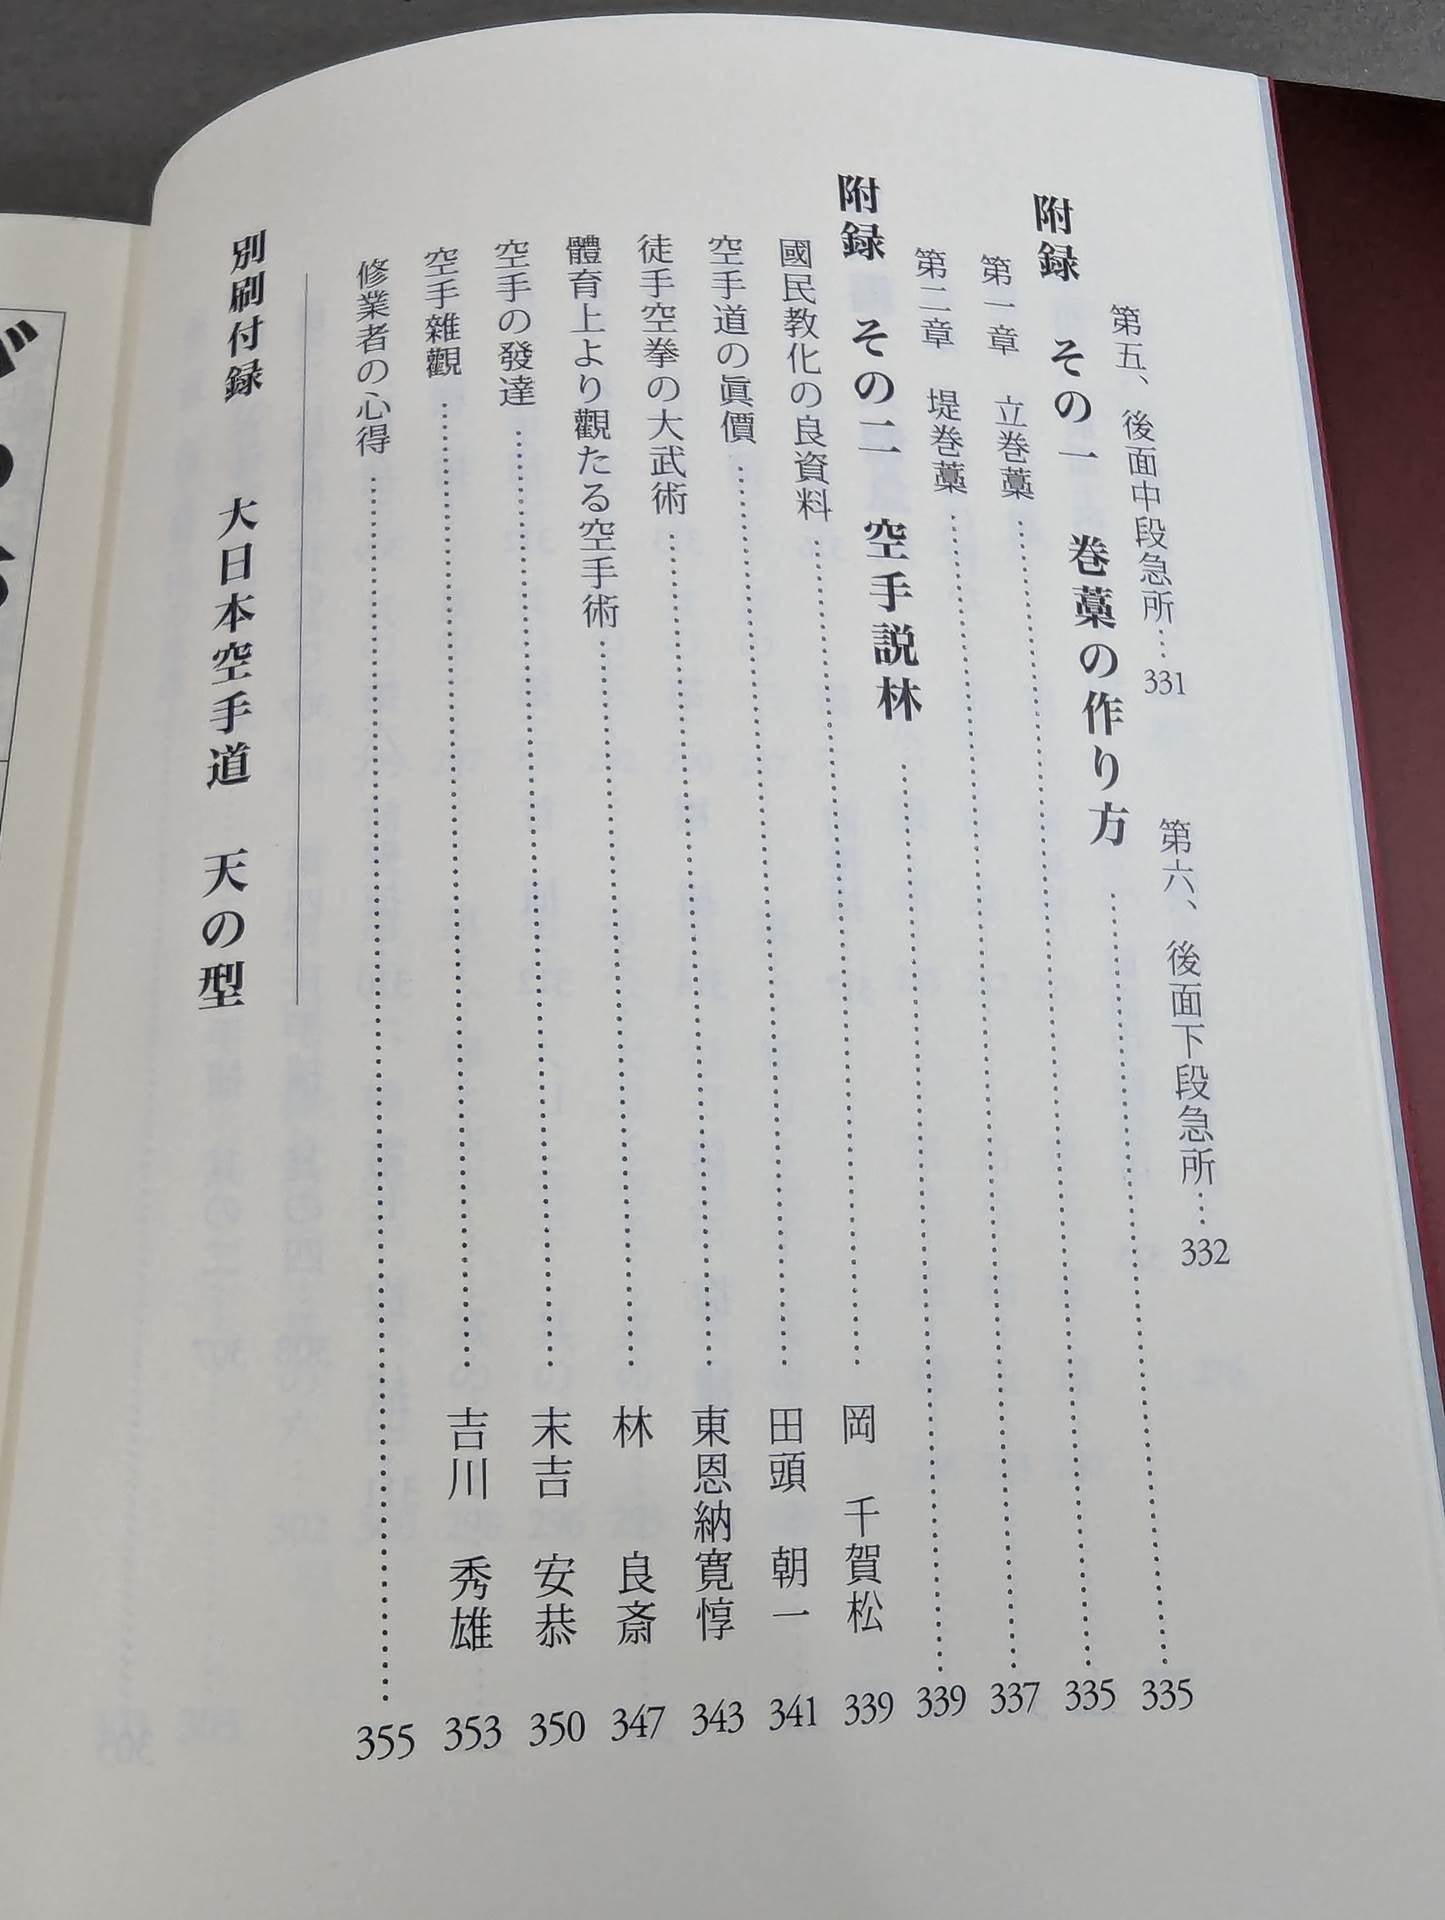 第五、後面中段急所…331　第六、後面下段急所…332
附録　その一　巻藁の作り方……335
第一章　立巻藁……335
第二章　堤巻藁……337
附録　その二　空手説林……339
國民教化の良資料……岡　千賀松　339
空手道の眞價……田頭　朝一　341
徒手空拳の大武術……東恩納寛惇　343
體育上より觀たる空手術……林　良斎　347
空手の發達……末吉　安恭　350
空手雜觀……吉川　秀雄　353
修業者の心得……355
別刷付録　大日本空手道　天の型